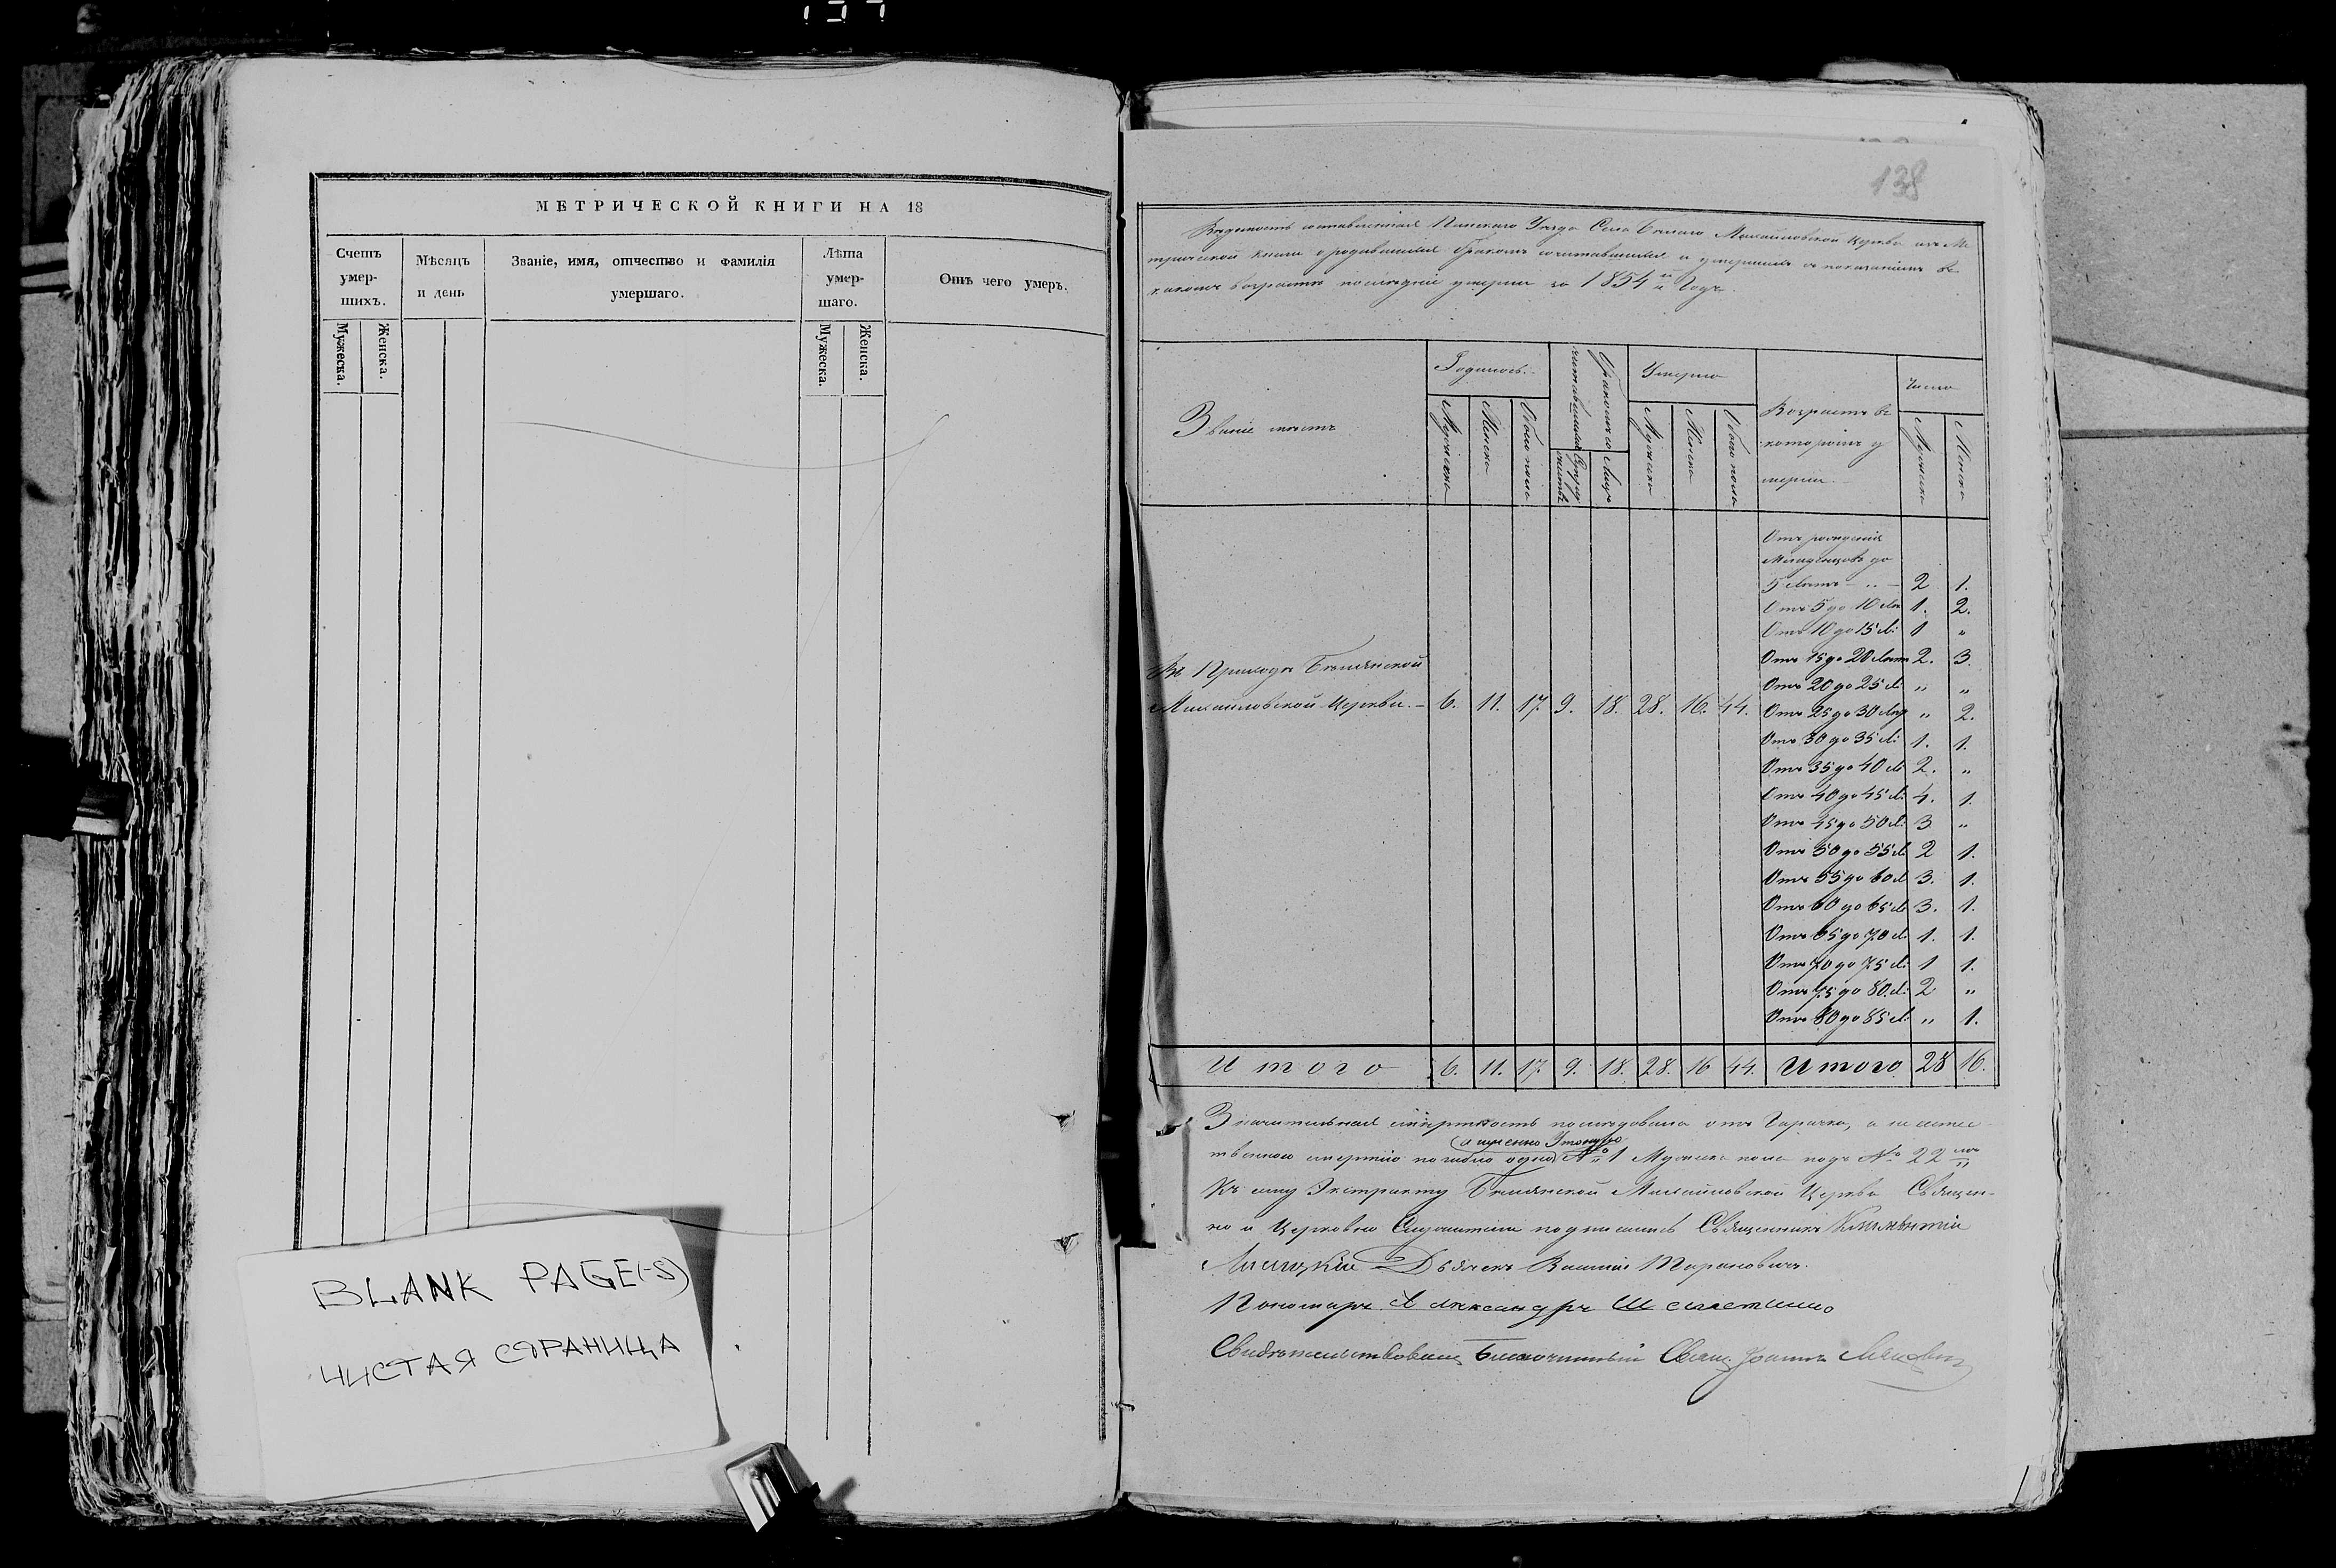 МЕТРИЧЕСКОЙ КНИГИ НА 18
Счетъ умер-шихъ.
Мужеска.
Женска.
Мѣсяцъ и день
Званіе, имя, отчество и фамилія умершаго.
Лѣта умер-шаго.
Мужеска.
Женска.
Отъ чего умеръ.
BLANK PAGE(-S)
ЧИСТАЯ СТРАНИЦА
138
Вѣдомость составленная Пинскаго Уѣзда Села Бѣлаго Михайловской Церкви изъ Ме
трической книги о родившихся бракомъ сочитавшихся и умершихъ съ показаніемъ въ
какомъ возрастѣ послѣдніе умерли за 1854 й Годъ.
Званіе мѣстъ
Родилось.
Мужеска
Женска
Обоего пола
Бракомъ со
читавшихся
Супру
жествъ
Лицъ
Умерло
Мужеска
Женска
Обоего пола
Возрастъ въ
которомъ у
мерли.
Число
Мужеска
Женска
Въ Приходѣ Бѣлянской
Михайловской Церкви. – 6. 11. 17. 9. 18. 28. 16. 44.
Отъ рожденія
Младенцовъ до
5 Лѣтъ – „ – 2 1.
Отъ 5 до 10 Лѣ 1. 2.
Отъ 10 до 15 Л: 1 „
Отъ 15 до 20 Лѣтъ 2. 3.
Отъ 20 до 25 Л „ „
Отъ 25 до 30 Лѣ „ 2.
Отъ 30 до 35 Л: 1. 1.
Отъ 35 до 40 Л 2. „
Отъ 40 до 45 Л: 4. 1.
Отъ 45 до 50 Л: 3 „
Отъ 50 до 55 Л 2 1.
Отъ 55 до 60 Л 3. 1.
Отъ 60 до 65 Л 3. 1.
Отъ 65 до 70 Л 1. 1.
Отъ 70 до 75 Л: 1 1.
Отъ 75 до 80. Л: 2 „
Отъ 80 до 85 Л: „ 1.
Итого 6. 11. 17. 9. 18. 28. 16 44. Итого 28 16.
Значительная смертность послѣдовала отъ Горячки, а не естес
а именно Утонуло
твенною смертію погибло одно № 1 Мужеска пола подъ № 22 мъ
Къ сему Экстракту Бѣлянской Михайловской Церкви Священ-
но и Церковно Служители подписались Священникъ
Дьячекъ Василій Тарановичъ.
Пономарь Александръ
Свидѣтельствовалъ Благочинный Свящ. Іоаннъ